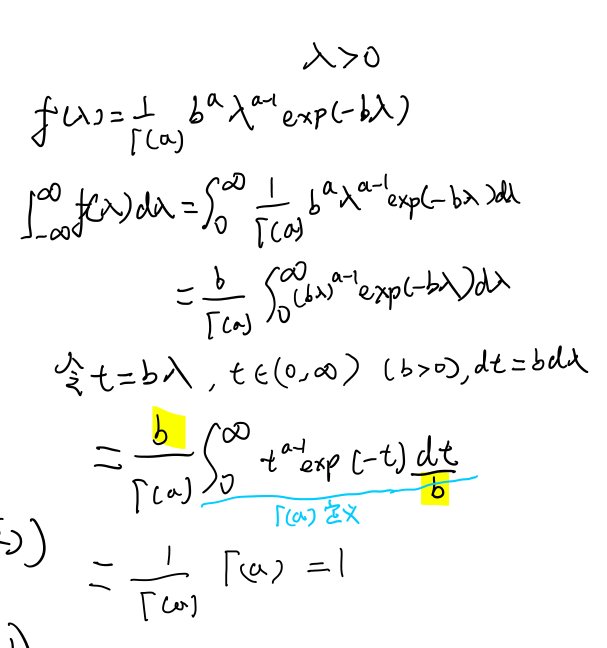 λ>0
f(λ)=1/Γ(a) b^a λ^(a-1) exp(-bλ)
∫_{-∞}^{∞} f(λ)dλ = ∫_0^∞ 1/Γ(a) b^a λ^(a-1) exp(-bλ)dλ
= b/Γ(a) ∫_0^∞ (bλ)^(a-1) exp(-bλ)dλ
令 t=bλ, t∈(0,∞) (b>0), dt=bdλ
= b/Γ(a) ∫_0^∞ t^(a-1) exp(-t) dt/b
Γ(a)定义
= 1/Γ(a) Γ(a) =1